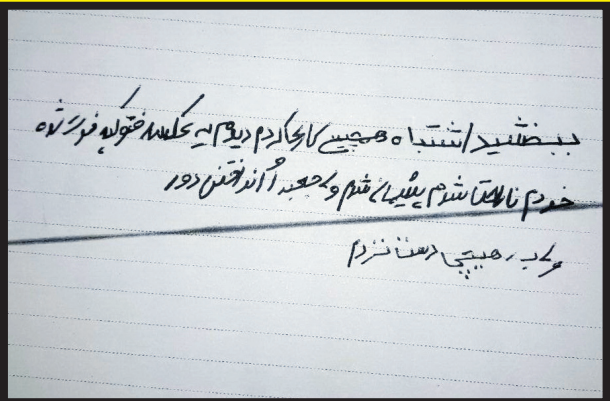 ببخشید اشتباه همچین کاریا کردم دیدم یه عکسه فتوکپه فورتنده
خودم ناراحتا شدم پشیمان شدم و جعبه اُ انداختن دور
ولی به هیچی دست نزدم